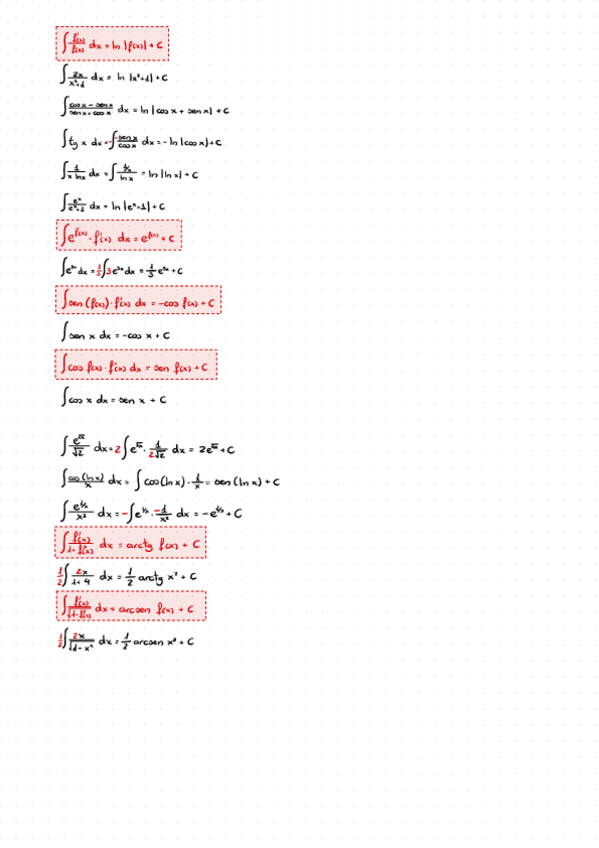 ∫ f'(x)/f(x) dx = ln |f(x)| + C
∫ 2x/(x²+1) dx = ln |x²+1| + C
∫ (cos x - sen x)/(sen x + cos x) dx = ln |cos x + sen x| + C
∫ tg x dx = -∫ -sen x/cos x dx = - ln |cos x| + C
∫ 1/(x lnx) dx = ∫ (1/x)/(ln x) = ln |ln x| + C
∫ eˣ/(eˣ+1) dx = ln |eˣ+1| + C
∫ e^f(x) · f'(x) dx = e^f(x) + C
∫ e³ˣ dx = 1/3 ∫ 3e³ˣ dx = 1/3 e³ˣ + C
∫ sen (f(x)) · f'(x) dx = -cos f(x) + C
∫ sen x dx = -cos x + C
∫ cos f(x) · f'(x) dx = sen f(x) + C
∫ cos x dx = sen x + C
dx = 2 ∫
∫ cos(ln x)/x dx = ∫ cos(ln x) · 1/x = sen (ln x) + C
∫ e^(1/x)/x² dx = -∫ e^(1/x) · -1/x² dx = -e^(1/x) + C
dx = arctg f(x) + C
1/2 ∫ dx = 1/2 arctg x² + C
dx = arcsen f(x) + C
1/2 ∫ 2x/√(1-x⁴) dx = 1/2 arcsen + C